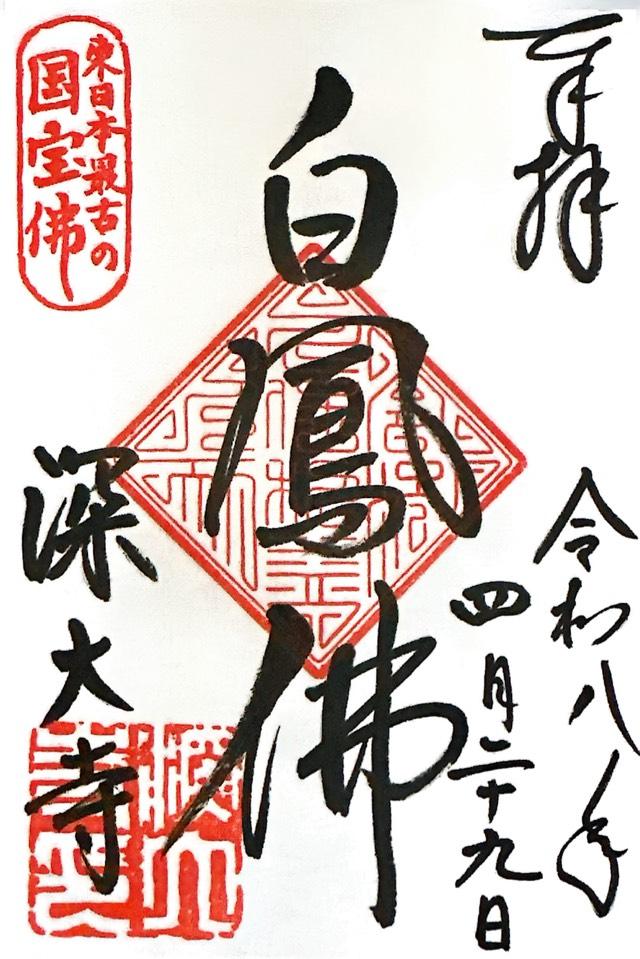 奉拝
令和八年
四月二十九日
白鳳佛
東日本最古の
国宝佛
深大寺